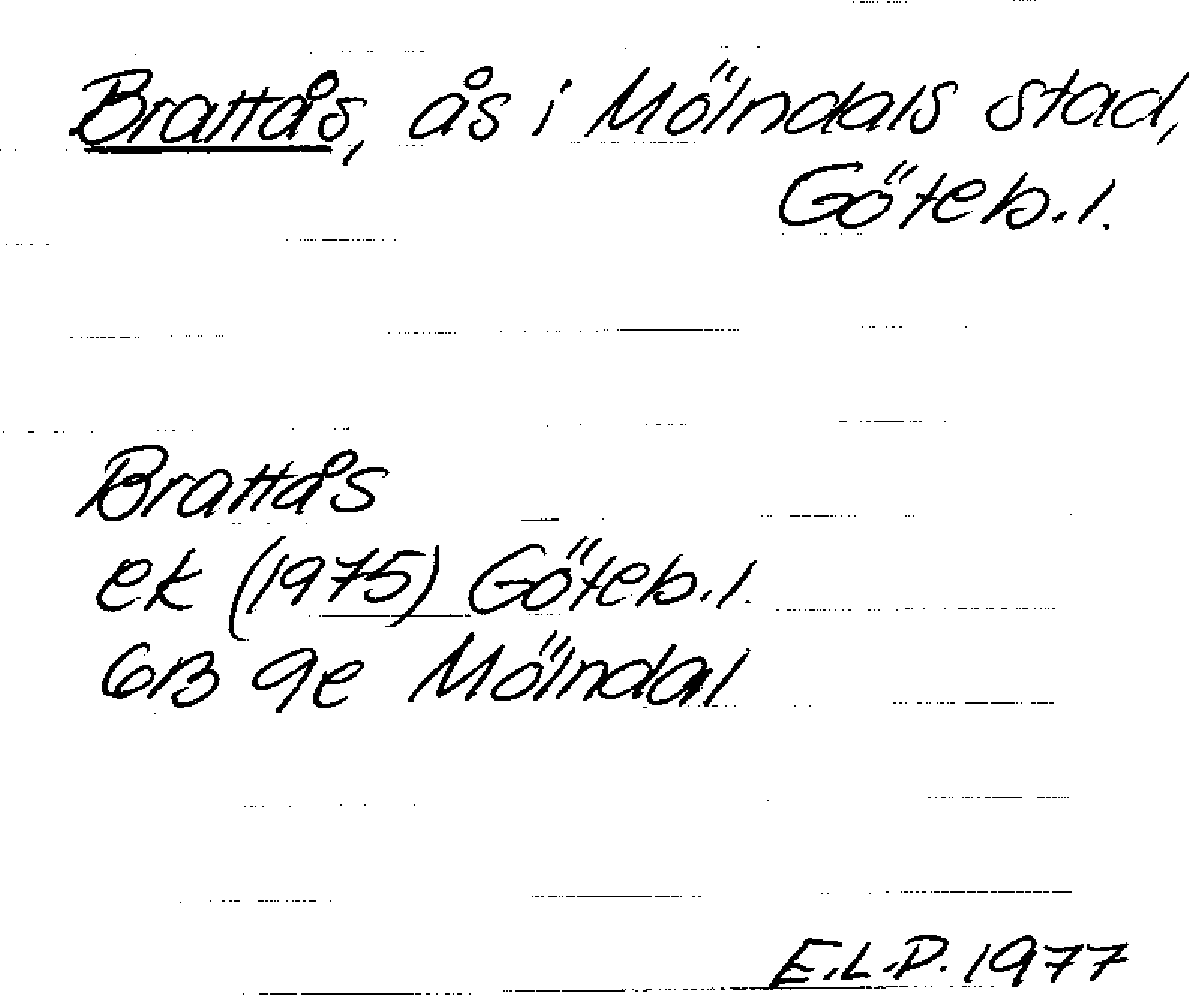 Brattås, ås i Mölndals stad,
Göteb. l.
Brattås
ek (1975) Göteb. l.
6B 9e Mölndal
E.L.P. 1977